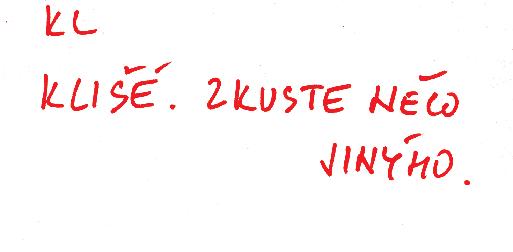 KL
KLIŠÉ. ZKUSTE NĚCO
JINÝHO.